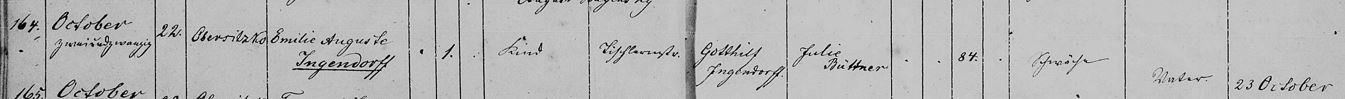 164. October 22. Obersitzko Emilie Auguste
zweiundzwanzig
Ingendorff 1. Kind Tischlermstr. Gotthilf Julie 84. Schwäche
Ingendorff. Büttner
Vater. 23 October
165. October